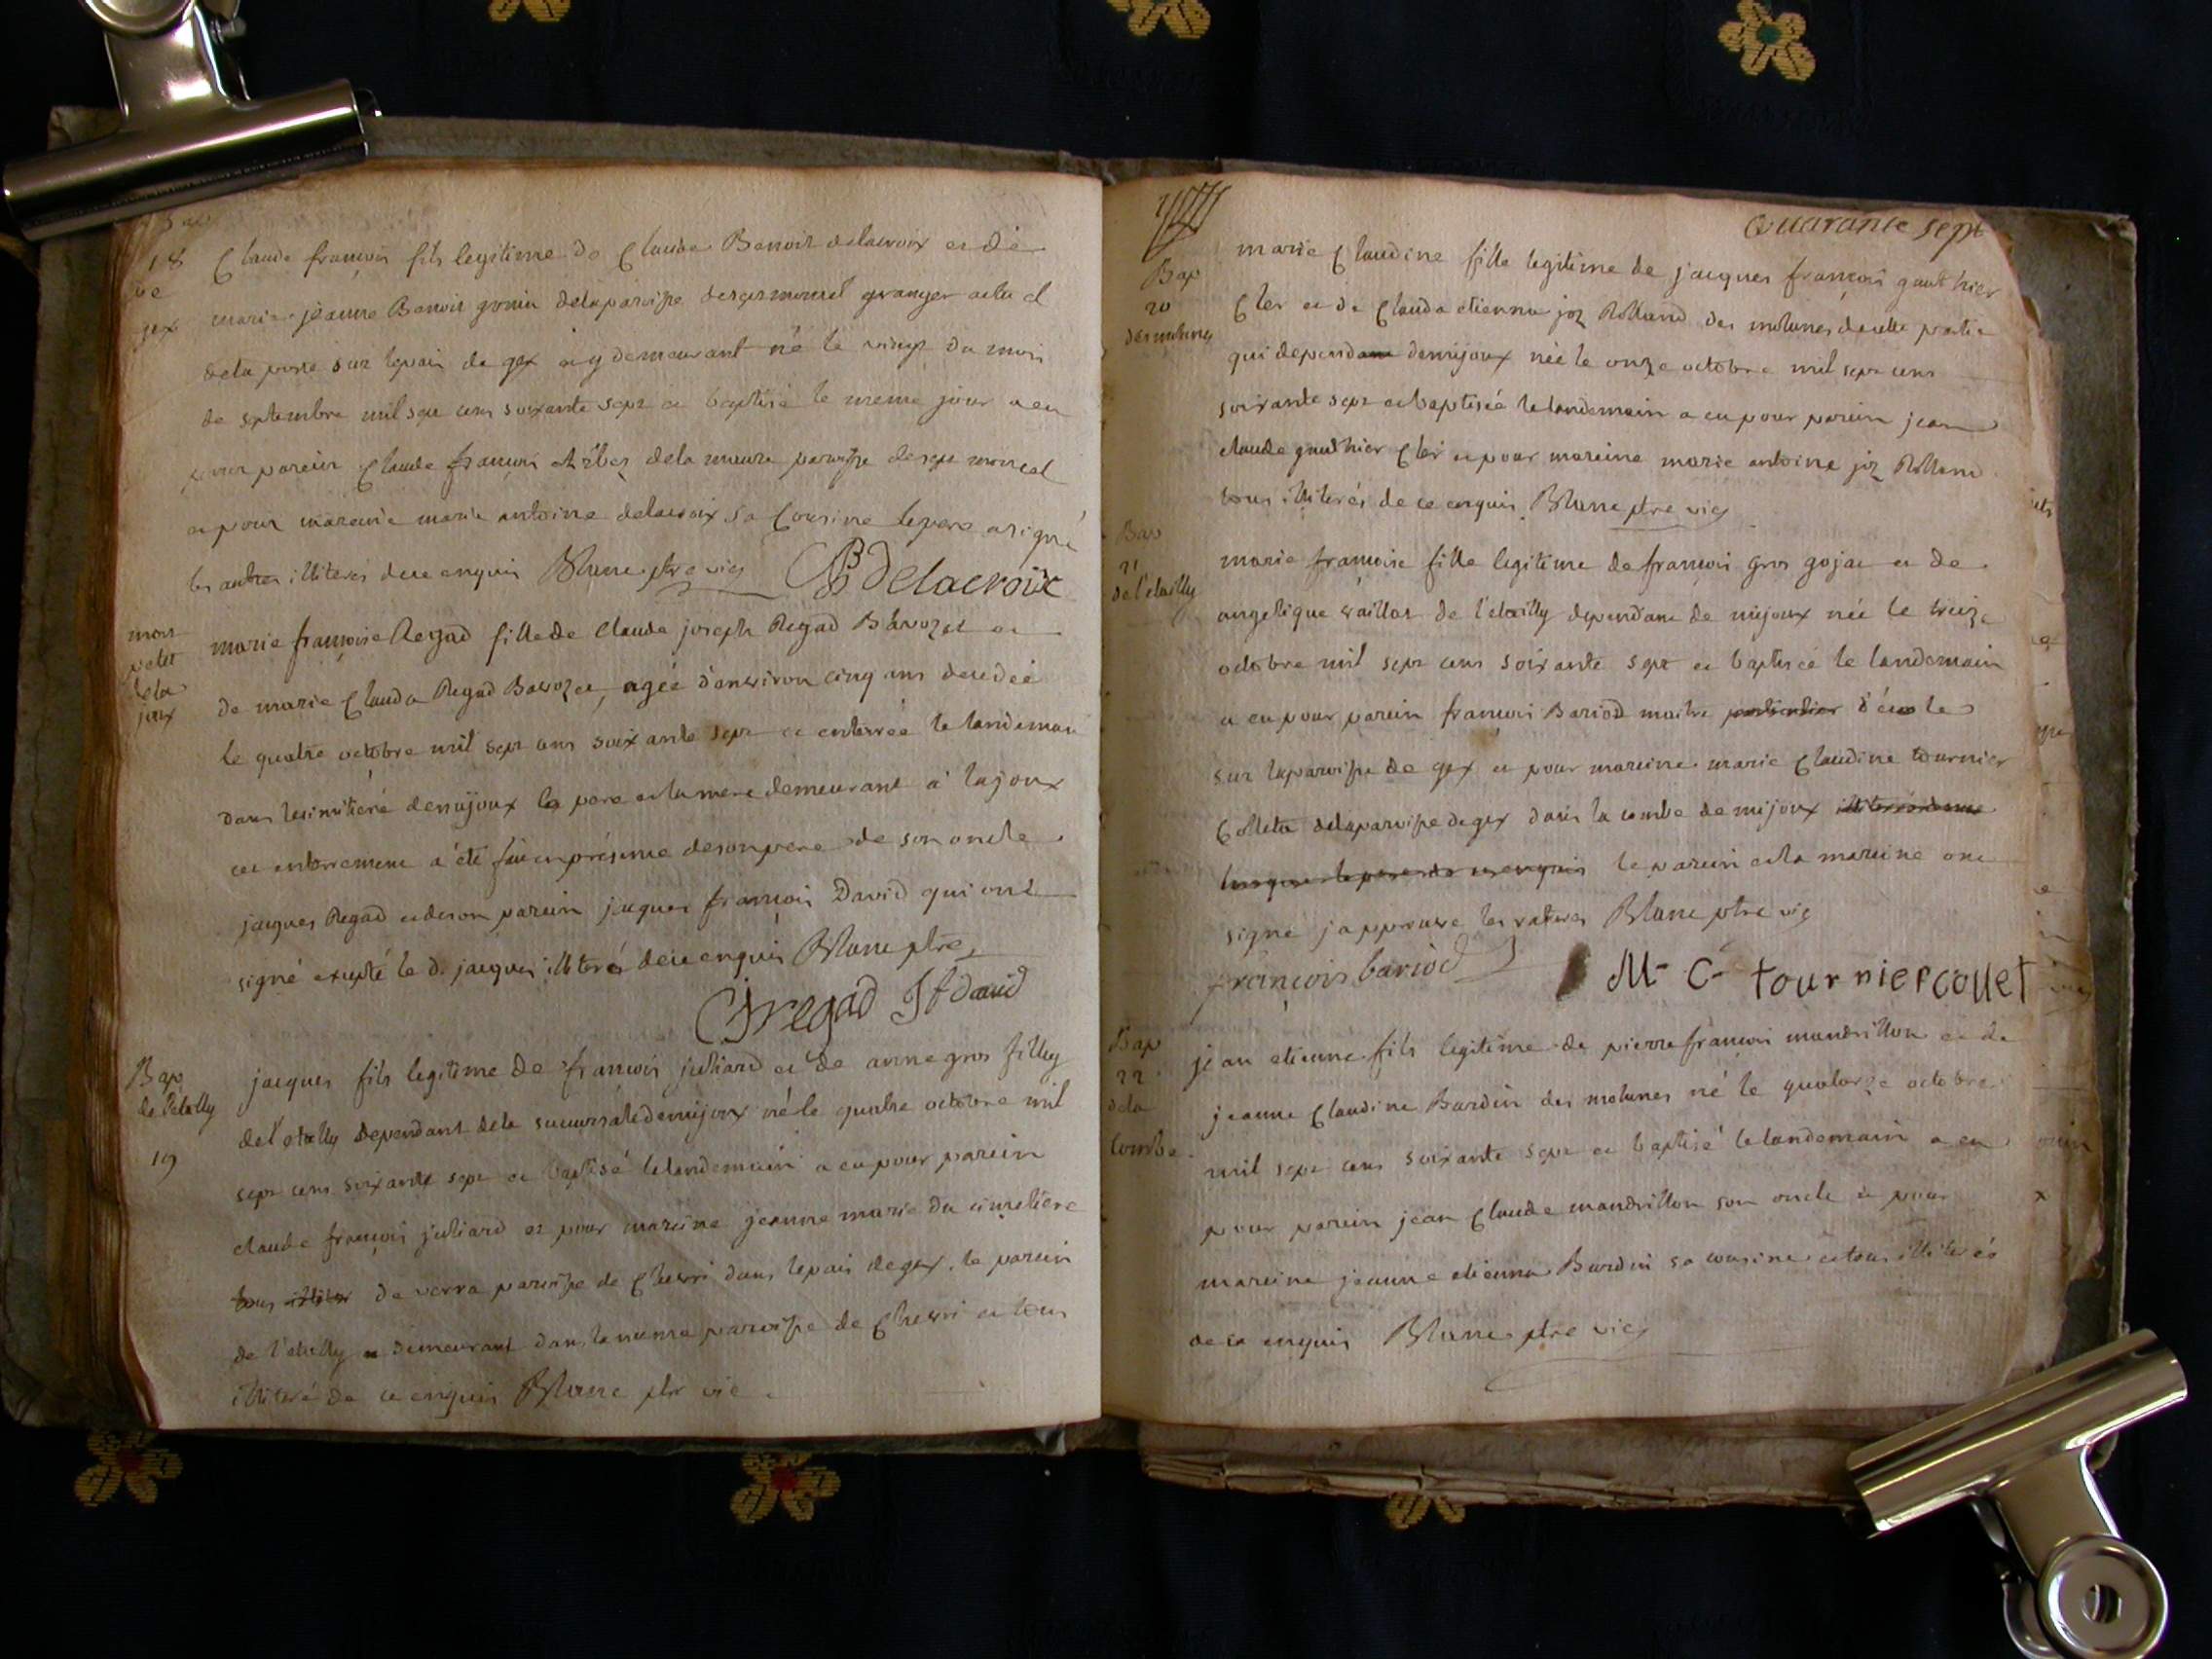 Bap
18
de
gex
Claude françois fils legitime de Claude Benoit delacroix et de
marie jeanne Benoit gonin delaparoisse deseptmoncel granger actuel
dela poste sur lepais de gex et y demeurant né le vingt du mois
de septembre mil sept cens soixante sept et baptisé le meme jour a eu
pour parein Claude françois dela meme paroisse de sept moncel
et pour mareine marie antoine delacroix sa Cousine le pere a signé
les autres illiterés de ce enquis Blanc ptre vic
CB Delacroix
mort
petit
dela
joux
marie françoise Regad fille de Claude joseph Regad Bavozet et
de marie Clauda Regad Bavozet, agée d'environ cinq ans decedée
le quatre octobre mil sept cens soixante sept et enterrée le landemain
dans lesimitiere demijoux le pere et la mere demeurant à lajoux
cet enterrement a été fait en présence de son pere de son oncle
jacques Regad et de son parein jacques françois David qui ont
signé excepté le d. jacques illiteré de ce enquis Blanc ptre
CJ regad J f david
Bap
de l'etally
19
jacques fils legitime de françois juliard et de anne gros filley
de l'etally dependant dela succursale demijoux né le quatre octobre mil
sept cens soixante sept et baptisé le landemain a eu pour parein
claude françois juliard et pour mareine jeanne marie du cimetiere
tous illiter de verra paroisse de Chevri dans le pais de gex. le parein
de l'etally demeurant dans la meme paroisse de Chevri et tous
illiteré de ce enquis Blanc ptre vic
Quarante sept
Bap
20
des molunes
marie Claudine fille legitime de jacques françois gauthier
Cler et de Clauda etienna joz Rolland des molunes de cette partie
qui depend demijoux née le onze octobre mil sept cens
soixante sept et baptisée le landemain a eu pour parein jean
claude gauthier Cler et pour mareine marie antoine joz Rolland
tous illiterés de ce enquis Blanc ptre vic
Bap
21
de l'etailly
marie françoise fille legitime de françois gros gojat et de
angelique vaillat de l'etailly dependant de mijoux née le treize
octobre mil sept cens soixante sept et baptisée le landemain
a eu pour parein françois Bariod maitre d'école
sur la paroisse de gex et pour mareine marie Claudine tournier
Colleta dela paroisse de gex dans la combe de mijoux
le parein et la mareine ont
signé j approuve les ratures Blanc ptre vic
françois bariod
M C tournier collet
Bap
22
dela
Combe
jean etienne fils legitime de pierre françois mandrillon et de
jeanne Claudine Burdin des molunes né le quatorze octobre
mil sept cens soixante sept et baptisé le landemain a eu
pour parein jean Claude mandrillon son oncle et pour
mareine jeanne etienna Burdin sa cousine et tous illiterés
de ce enquis Blanc ptre vic